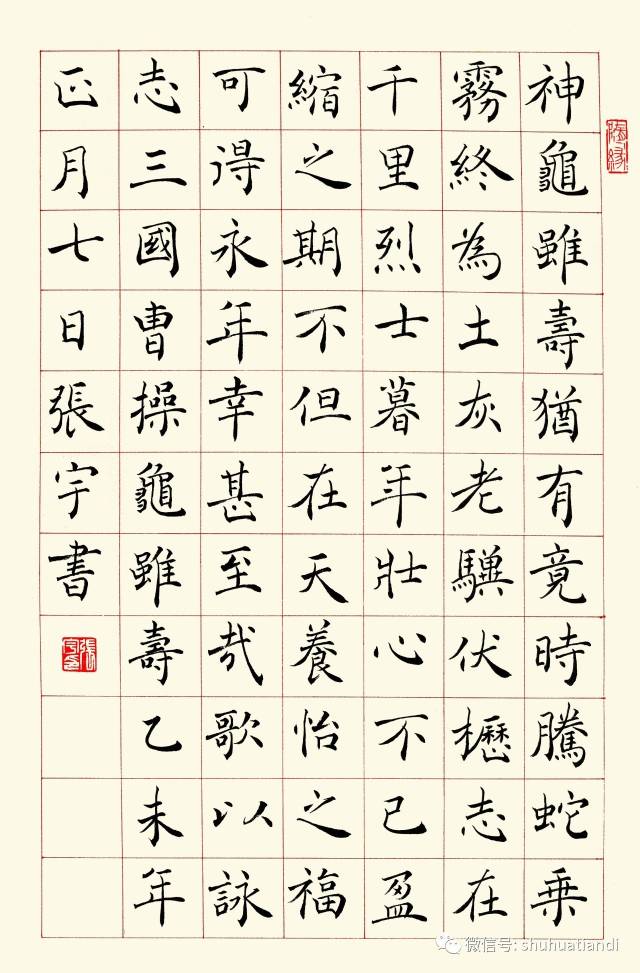 神龜雖壽猶有竟時騰蛇乘
霧終為土灰老驥伏櫪志在
千里烈士暮年壯心不已盈
縮之期不但在天養怡之福
可得永年幸甚至哉歌以詠
志三國曹操龜雖壽乙未年
正月七日張宇書
張宇印
微信号: shuhuatiandi